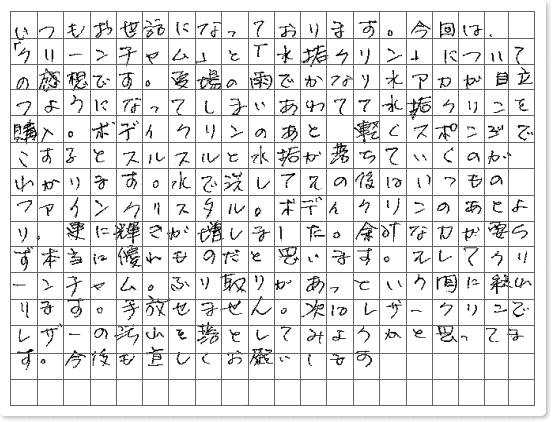 いつもお世話になっております。今回は、
「クリーンチャム」と「水垢クリン」について
の感想です。夏場の雨でかなり水アカが目立
つようになってしまいあわてて水垢クリンを
購入。ボディクリンのあと 軽くスポンジで
こするとスルスルと水垢が落ちていくのが
わかります。水で流してその後はいつもの
ファインクリスタル。ボディクリンのあとよ
り、更に輝きが増しました。余計な力が要ら
ず本当に優れものだと思います。そしてクリ
ーンチャム。ふり取りがあっという間に終わ
ります。手放せません。次はレザークリンで
レザーの汚れを落としてみようかと思ってま
す。今後も宜しくお願いします